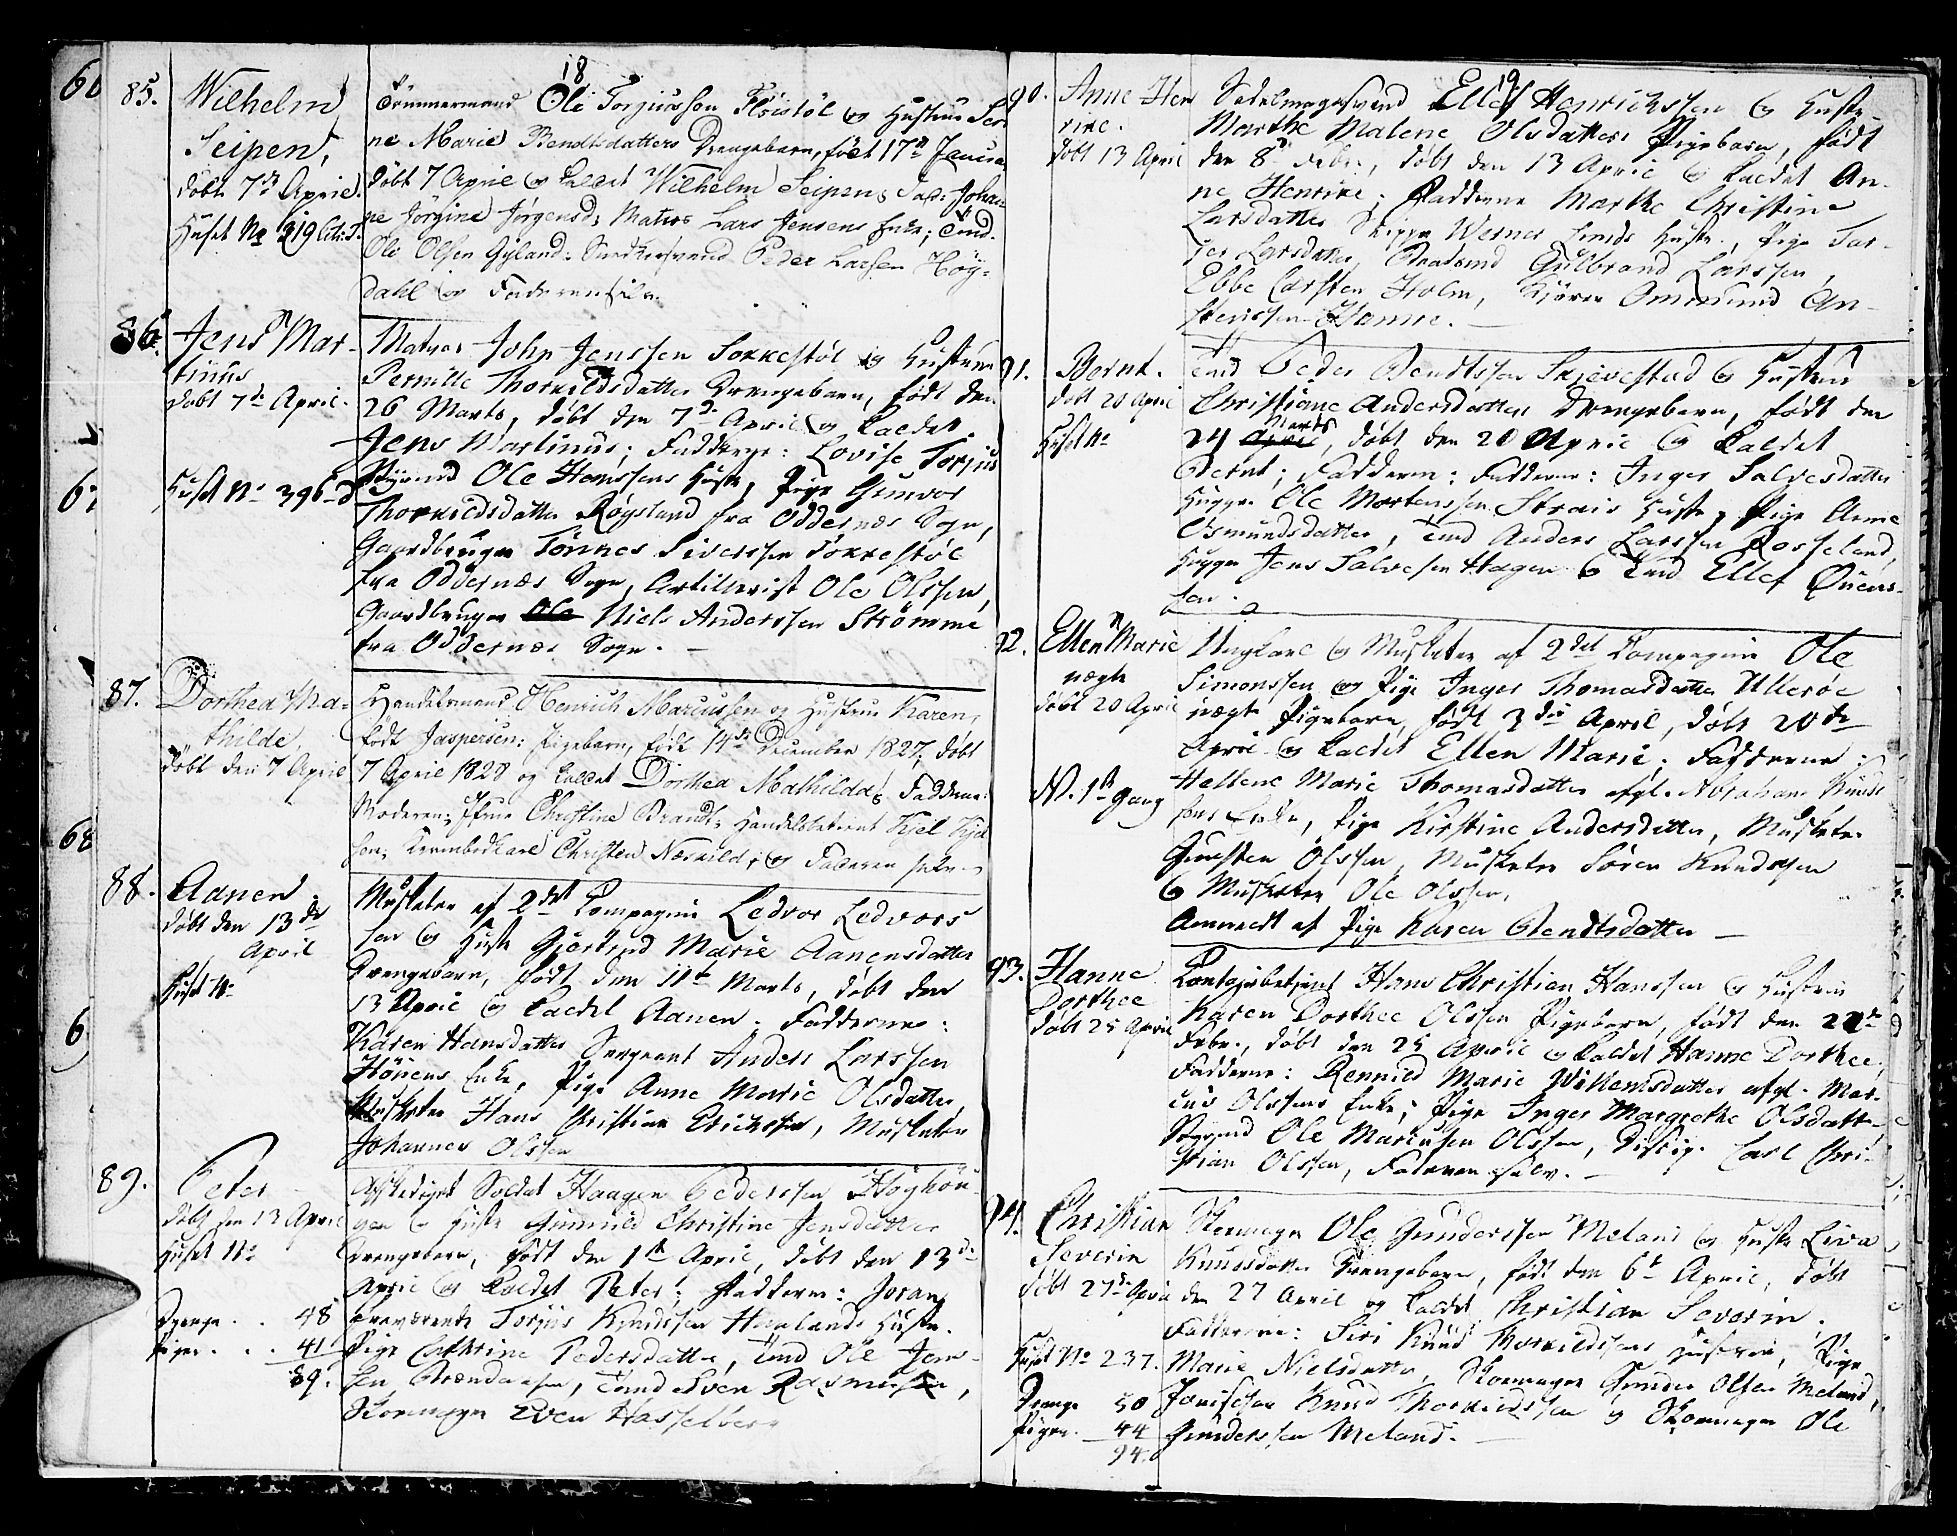 18
85.
Wilhelm
Seipen,
döbt 7de April.
Huset No 319 Litr. J.
Tömmermand Ole Torjussen Flöistöl og Hustrue Seri
ne Marie Bendtsdatters Drengebarn, födt 17de Janua
döbt 7 April og kaldet Wilhelm Seipen; Fad: Johan
ne Jörgine Jörgensd: Matros Lars Jensens Enke; Tömd.
Ole Olsen Gyland: Snedkersvend Peder Larsen Höy-
dahl og Faderen selv.
86.
Jens Mar-
tinus
Döbt 7de April.
Huset No 396 d
Matros John Jenssen Sokkestöl og Hustrue
Pernille Thorkildsdatter Drengebarn, födt den
26 Marts, döbt den 7de April og kaldet
Jens Martinus; Fadderne: Lovise Torjus
Ole Hansens Hustr., Pige Gunvor
Thorkildsdatter Røgsland fra Oddernæs Sogn,
Gaardbruger Tönnes Siverssen Sokkestöl
fra Oddernæs Sogn, Artillerist Ole Olssen,
Gaardbruger Ole Niels Anderssen Strömme
fra Oddernæs Sogn. –
87.
Dorthea Ma-
thilde,
Döbt den 7 April
Handelsmand Henrich Marcussen og Hustrue Karen,
födt Jaspersen: Pigebarn, födt 14de December 1827, döbt
7 April 1828 og kaldet Dorthea Mathilda; Fadderne:
Moderen; Jfrue Christine Brandt; Handelsbetient Kjel Kjel
sen, Krambodkarl Christen Næskild; og Faderen selv.
88.
Aanen
döbt den 13de
April
Huset No
Musketer af 2det Compagnie Ledvor Ledvors
sen og Hustr. Gjertrud Marie Aanensdatter
Drengebarn, födt den 11te Marts, döbt den
13 April og kaldet Aanen. Fadderne:
Karen Hansdatter Sergeant Anders Larssen
Höiens Enke, Pige Anne Marie Olsdatter,
Musketer Hans Christian Erichsen, Musketer
Johannes Olssen
89.
Peter
döbt den 13 April
Huset No
Drenge . . 48
Piger . . . 41
89.
Afskediget Soldat Haagen Pederssen Höghou-
gen og Hustr. Gunnild Christine Jensdatter
Drengebarn, födt den 1te April, döbt den 13de
April og kaldet Peter; Fadderne: Joran
Torjus Knudssen Haalands Hustr.
Pige Cathrine Pedersdatter, Tmd Ole Jens-
sen, Tmd Sven Rasmussen,
Skomager Even Hasselberg
19
90.
Anne Hen
rike.
Döbt 13 April
Sadelmagersvend Ellef Henrichssen og Hustr.
Marthe Malene Olsdatters Pigebarn, födt
den 8de Febr., döbt den 13 April og kaldet An-
ne Henrike; Fadderne Marthe Christine
Larsdatter Skipper Werner Hustr., Pige Tar-
jer Larsdatter, Gulbrand Larssen,
Ebbe Carsten Holm, Ommund An-
91.
Bernt.
döbt 20 April
Huset No
Tmd Peder Bendtssen Skievestad og Hustrue
Christiane Andersdatters Drengebarn, födt den
24 April Marts, döbt den 20 April og kaldet
Bernt; Fadderne: Fadderne: Inger Salvesdatter
Ole Mortenssen Strais Hustr., Pige Anne
Osmundsdatter, Tmd Anders Larssen Rosseland,
Jens Salvesen Hagen og Tmd Ellef Ouens-
sen.
92.
Ellen Marie
uægte
döbt 20 April
N. 1te Gang
Ungkarl og Musketer af 2det Compagnie Ole
Simonssen og Pige Inger Thomasdatter Ulleröe
uægte Pigebarn, födt 3die April, döbt 20de
April og kaldet Ellen Marie; Fadderne:
Hellene Marie Thomasdatter afgl. Abraham Knud
sens Enke, Pige Kirstine Andersdatter, Musketer
Olssen, Musketer Sören Knudssen
og Musketer Ole Olssen,
Anmeldt af Pige Karen Bendtsdatter –
93.
Hanne
Dorthee
döbt 25 April
Hans Christian Hanssen og Hustrue
Karen Dorthee Olssen Pigebarn, födt den 22de
Febr., döbt den 25 April og kaldet Hanne Dorthee;
Fadderne: Rennild Marie Willemsdatter afgl. Mar-
cus Olssens Enke; Pige Inger Margrethe Olsdatter,
Ole Marcussen Olssen, Carl Chri-
stian Olssen, Faderen selv. –
94.
Christian
Severin
döbt 27de April
Huset No 237.
Drenge 50
Piger. 44
94.
Skomager Ole Gunderssen Meland og Hustr. Liva
Knudsdatter Drengebarn, födt den 6te April, döbt
den 27 April og kaldet Christian Severin.
Fadderne: Siri Knud Thorkildssens Hustrue, Pige
Marie Nielsdatter, Skomager Gunder Olsen Meland,
Knud Thorkildssen og Skomager Ole
Gunderssen Meland. –